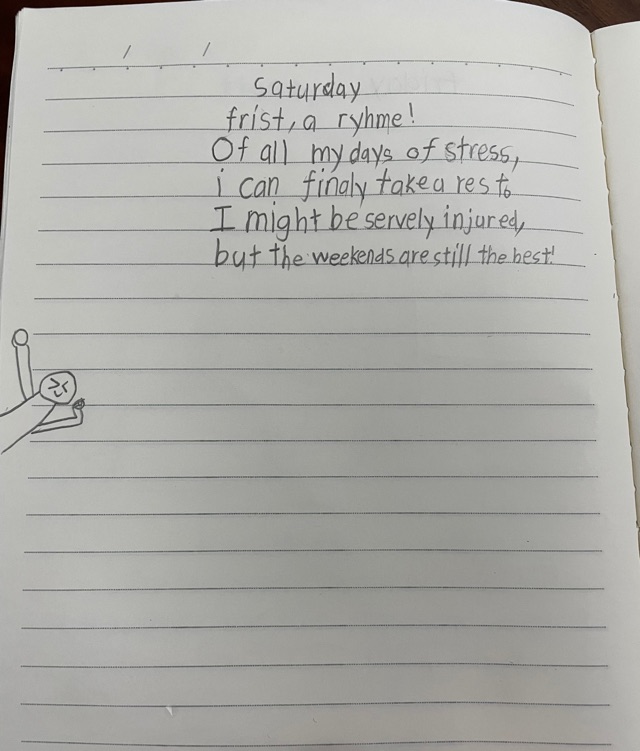 Saturday
frist, a ryhme!
Of all my days of stress,
i can finaly take a rest.
I might be servely injured,
but the weekends are still the best!